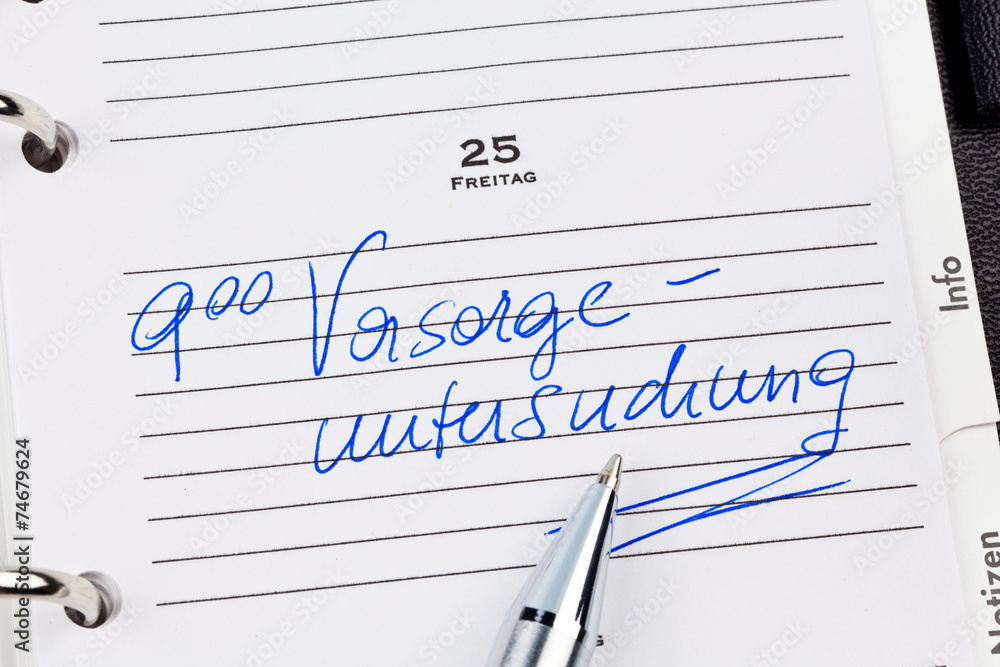 25
FREITAG
9⁰⁰ Vorsorge-
untersuchung
Info
Notizen
Adobe Stock | #74679624